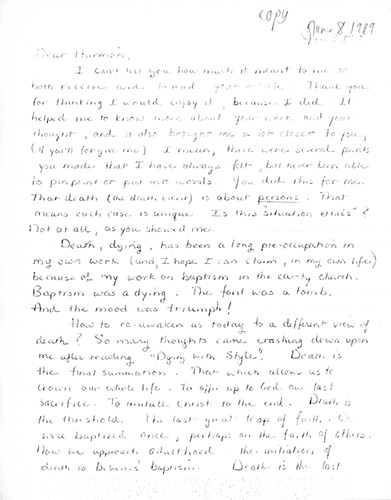 COPY
June 8, 1989
Dear Harmon,
I can't tell you how much it meant to me to
both receive and to read your article. Thank you
for thinking I would enjoy it, because I did. It
helped me to know more about your work and your
thought, and it also brought me a lot closer to you,
(if you'll forgive me) I mean, there were several points
you made that I have always felt, but never been able
to pinpoint or put into words. You did this for me.
That death (the death event) is about persons. That
means each case is unique. Is this "situation ethics"?
Not at all, as you showed me.
Death, dying, has been a long pre-occupation in
my own work (and, I hope I can claim, in my own life)
because of my work on baptism in the early church.
Baptism was a dying. The font was a tomb.
And the mood was triumph!
How to re-awaken us today to a different view of
death? So many thoughts came crashing down upon
me after reading "Dying with Style". Death is
the final summation. That which allows us to
crown our whole life. To offer up to God our last
sacrifice. To imitate Christ to the end. Death is
the threshold. The last great leap of faith. We
were baptized once, perhaps on the faith of others.
Now we approach adulthood - the initiation of
death to baptism. Death is the last